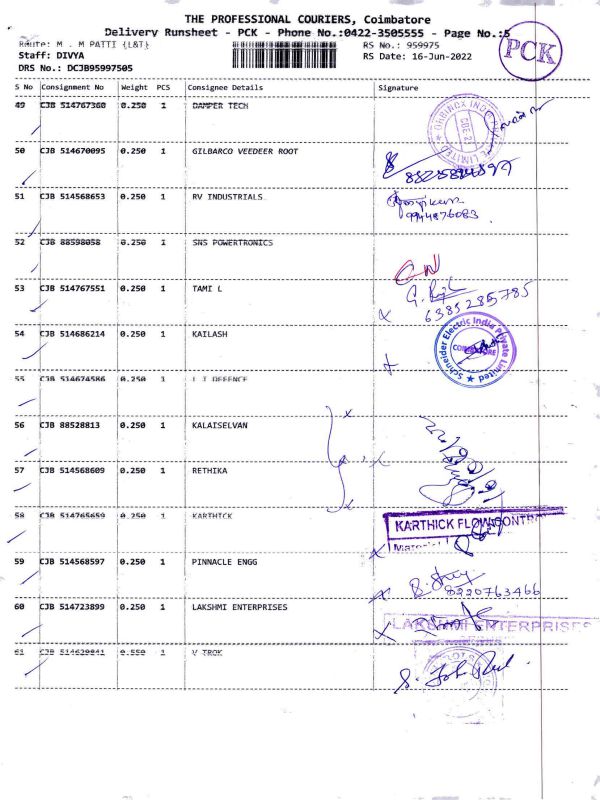 THE PROFESSIONAL COURIERS, Coimbatore
Delivery Runsheet - PCK - Phone No.:0422-3505555 - Page No.:5
Route: M . M PATTI {L&T}
RS No.: 959975
PCK
Staff: DIVYA
RS Date: 16-Jun-2022
DRS No.: DCJB95997505
S No Consignment No Weight PCS Consignee Details Signature
49 CJB 514767360 0.250 1 DAMPER TECH
50 CJB 514670095 0.250 1 GILBARCO VEEDEER ROOT
51 CJB 514568653 0.250 1 RV INDUSTRIALS
9944876083
52 CJB 88598058 0.250 1 SNS POWERTRONICS
53 CJB 514767551 0.250 1 TAMI L
6385285785
54 CJB 514686214 0.250 1 KAILASH
Schneider Electric India Private Limited
COIMBATORE
55 CJB 514674586 0.250 1 L T DEFENCE
56 CJB 88528813 0.250 1 KALAISELVAN
57 CJB 514568609 0.250 1 RETHIKA
58 CJB 514765659 0.250 1 KARTHICK
KARTHICK FLOW CONTR
Material
59 CJB 514568597 0.250 1 PINNACLE ENGG
8220763466
60 CJB 514723899 0.250 1 LAKSHMI ENTERPRISES
LAKSHMI ENTERPRISES
61 CJB 514629841 0.550 1 V TROK